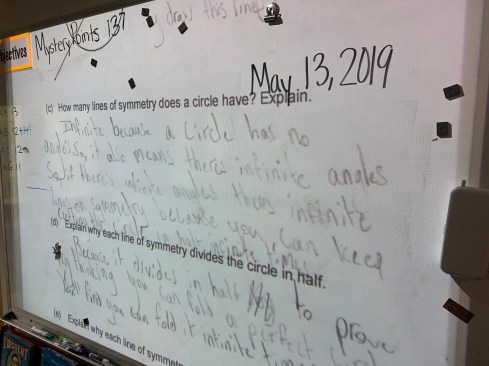 draw this line
bjectives
Mystery Points 137
May 13, 2019
(c) How many lines of symmetry does a circle have? Explain.
Infinite because a circle has no
angles, it also means theres infinite angles
So if there's infinite angles theres infinite
lines on symmetry because you can keep
cutting the in half infinite times
(d) Explain why each line of symmetry divides the circle in half.
Because it divides in half to prove
thinking you can fold a perfect
You'll find you can fold it infinite times
(e) Explain why each line of symmet